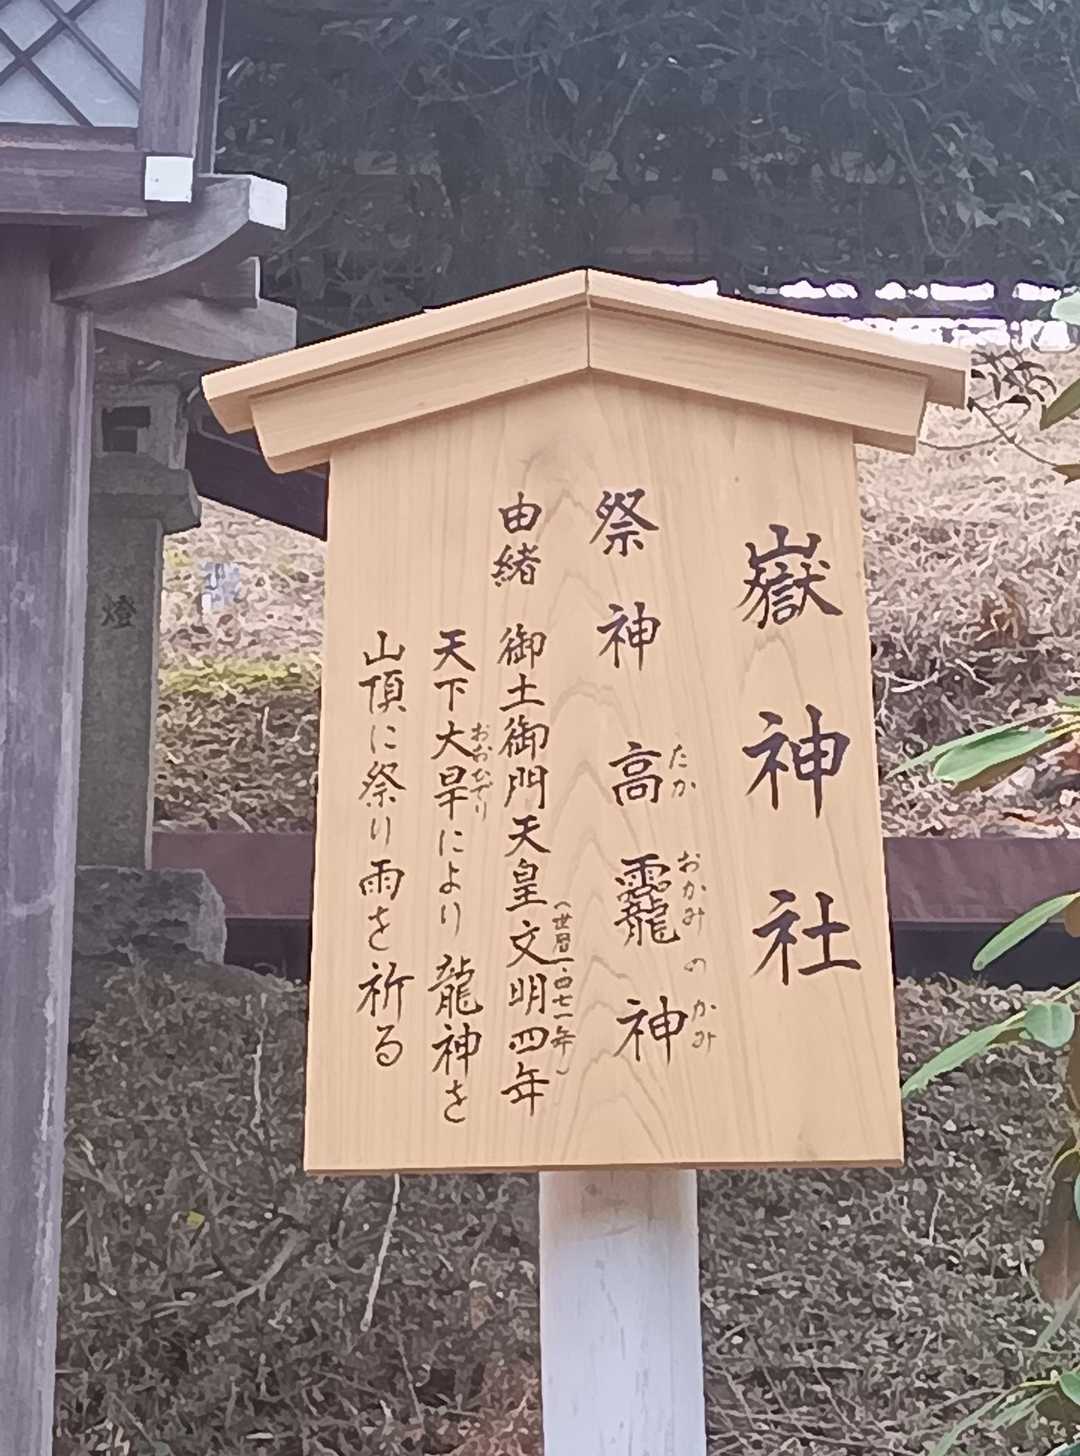 嶽神社
たか おかみ の かみ
祭神 高龗神
(世暦一四七一年)
由緒 御土御門天皇文明四年
おおひでり
天下大旱により龍神を
山頂に祭り雨を祈る
燈